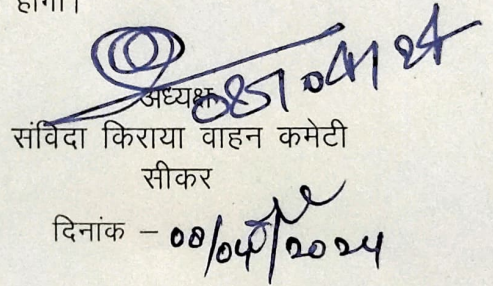 होगा।
08/04/24
अध्यक्ष
संविदा किराया वाहन कमेटी
सीकर
दिनांक – 08/04/2024